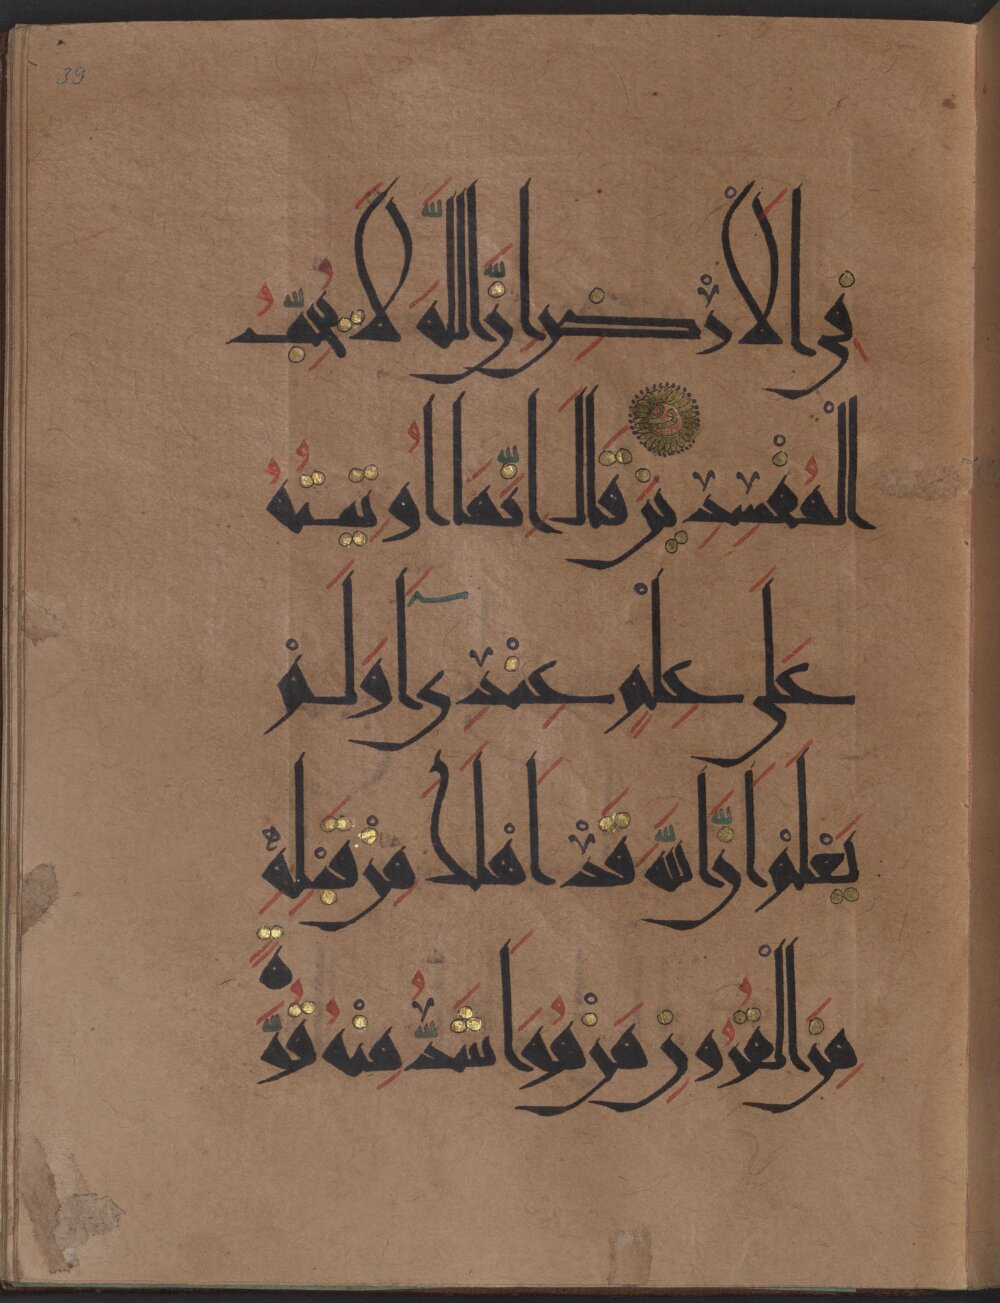 39
فِى الْاَرْضِ اِنَّ اللّٰهَ لَا يُحِبُّ
الْمُفْسِدِينَ قَالَ اِنَّمَا اُوتِيتُهُ
عَلَى عِلْمٍ عِنْدِى اَوَلَمْ
يَعْلَمْ اَنَّ اللّٰهَ قَدْ اَهْلَكَ مِنْ قَبْلِهِ
مِنَ الْقُرُونِ مَنْ هُوَ اَشَدُّ مِنْهُ قُوَّةً